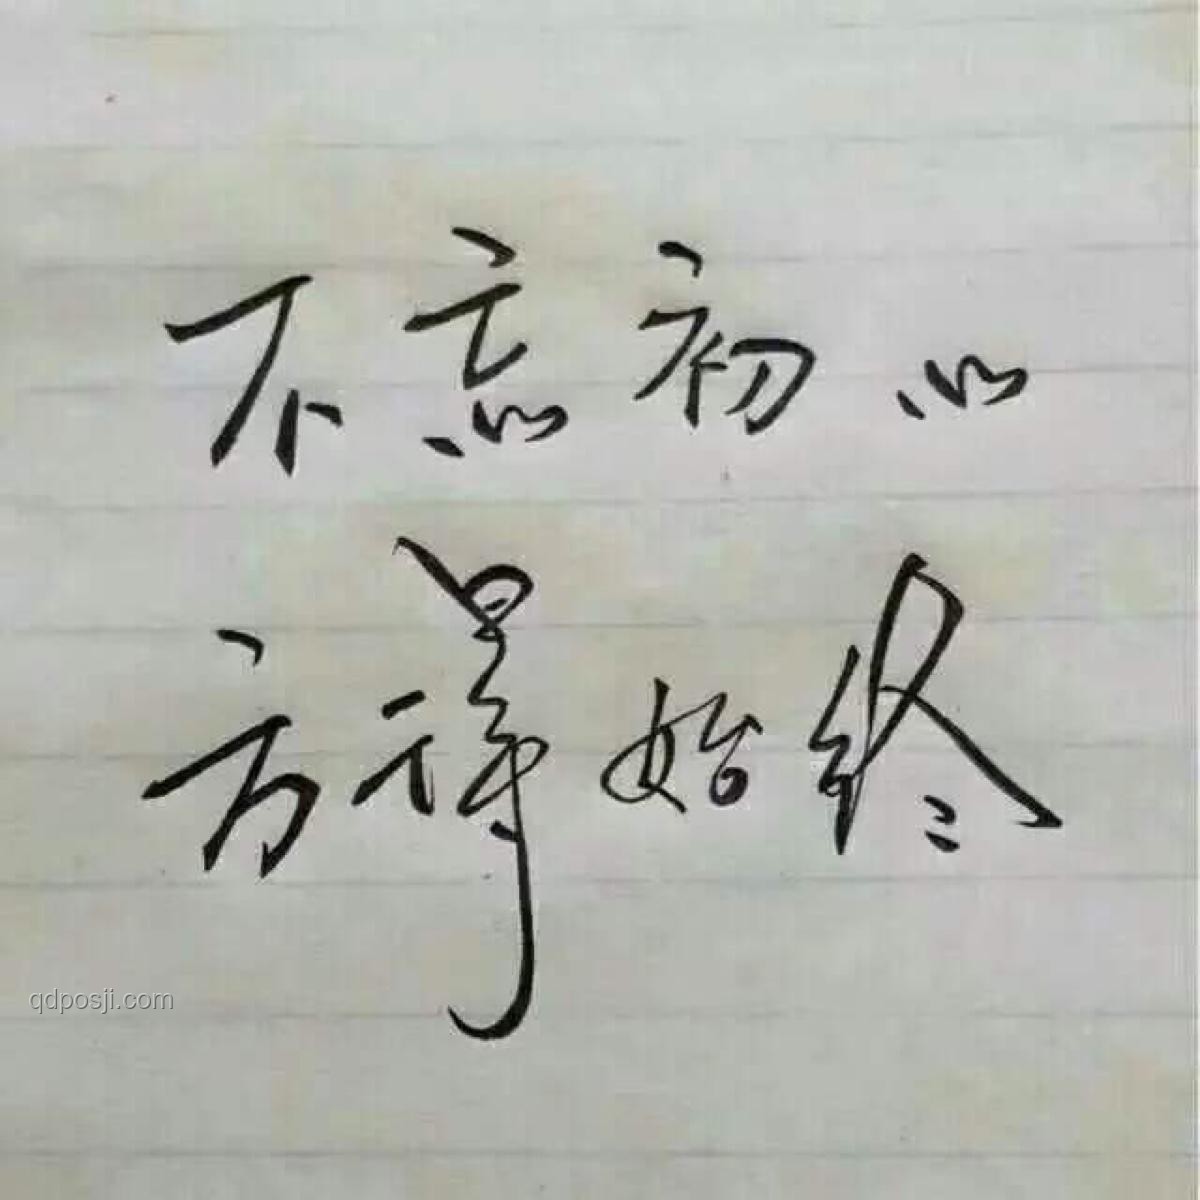 不忘初心
方得始终
qdposji.com